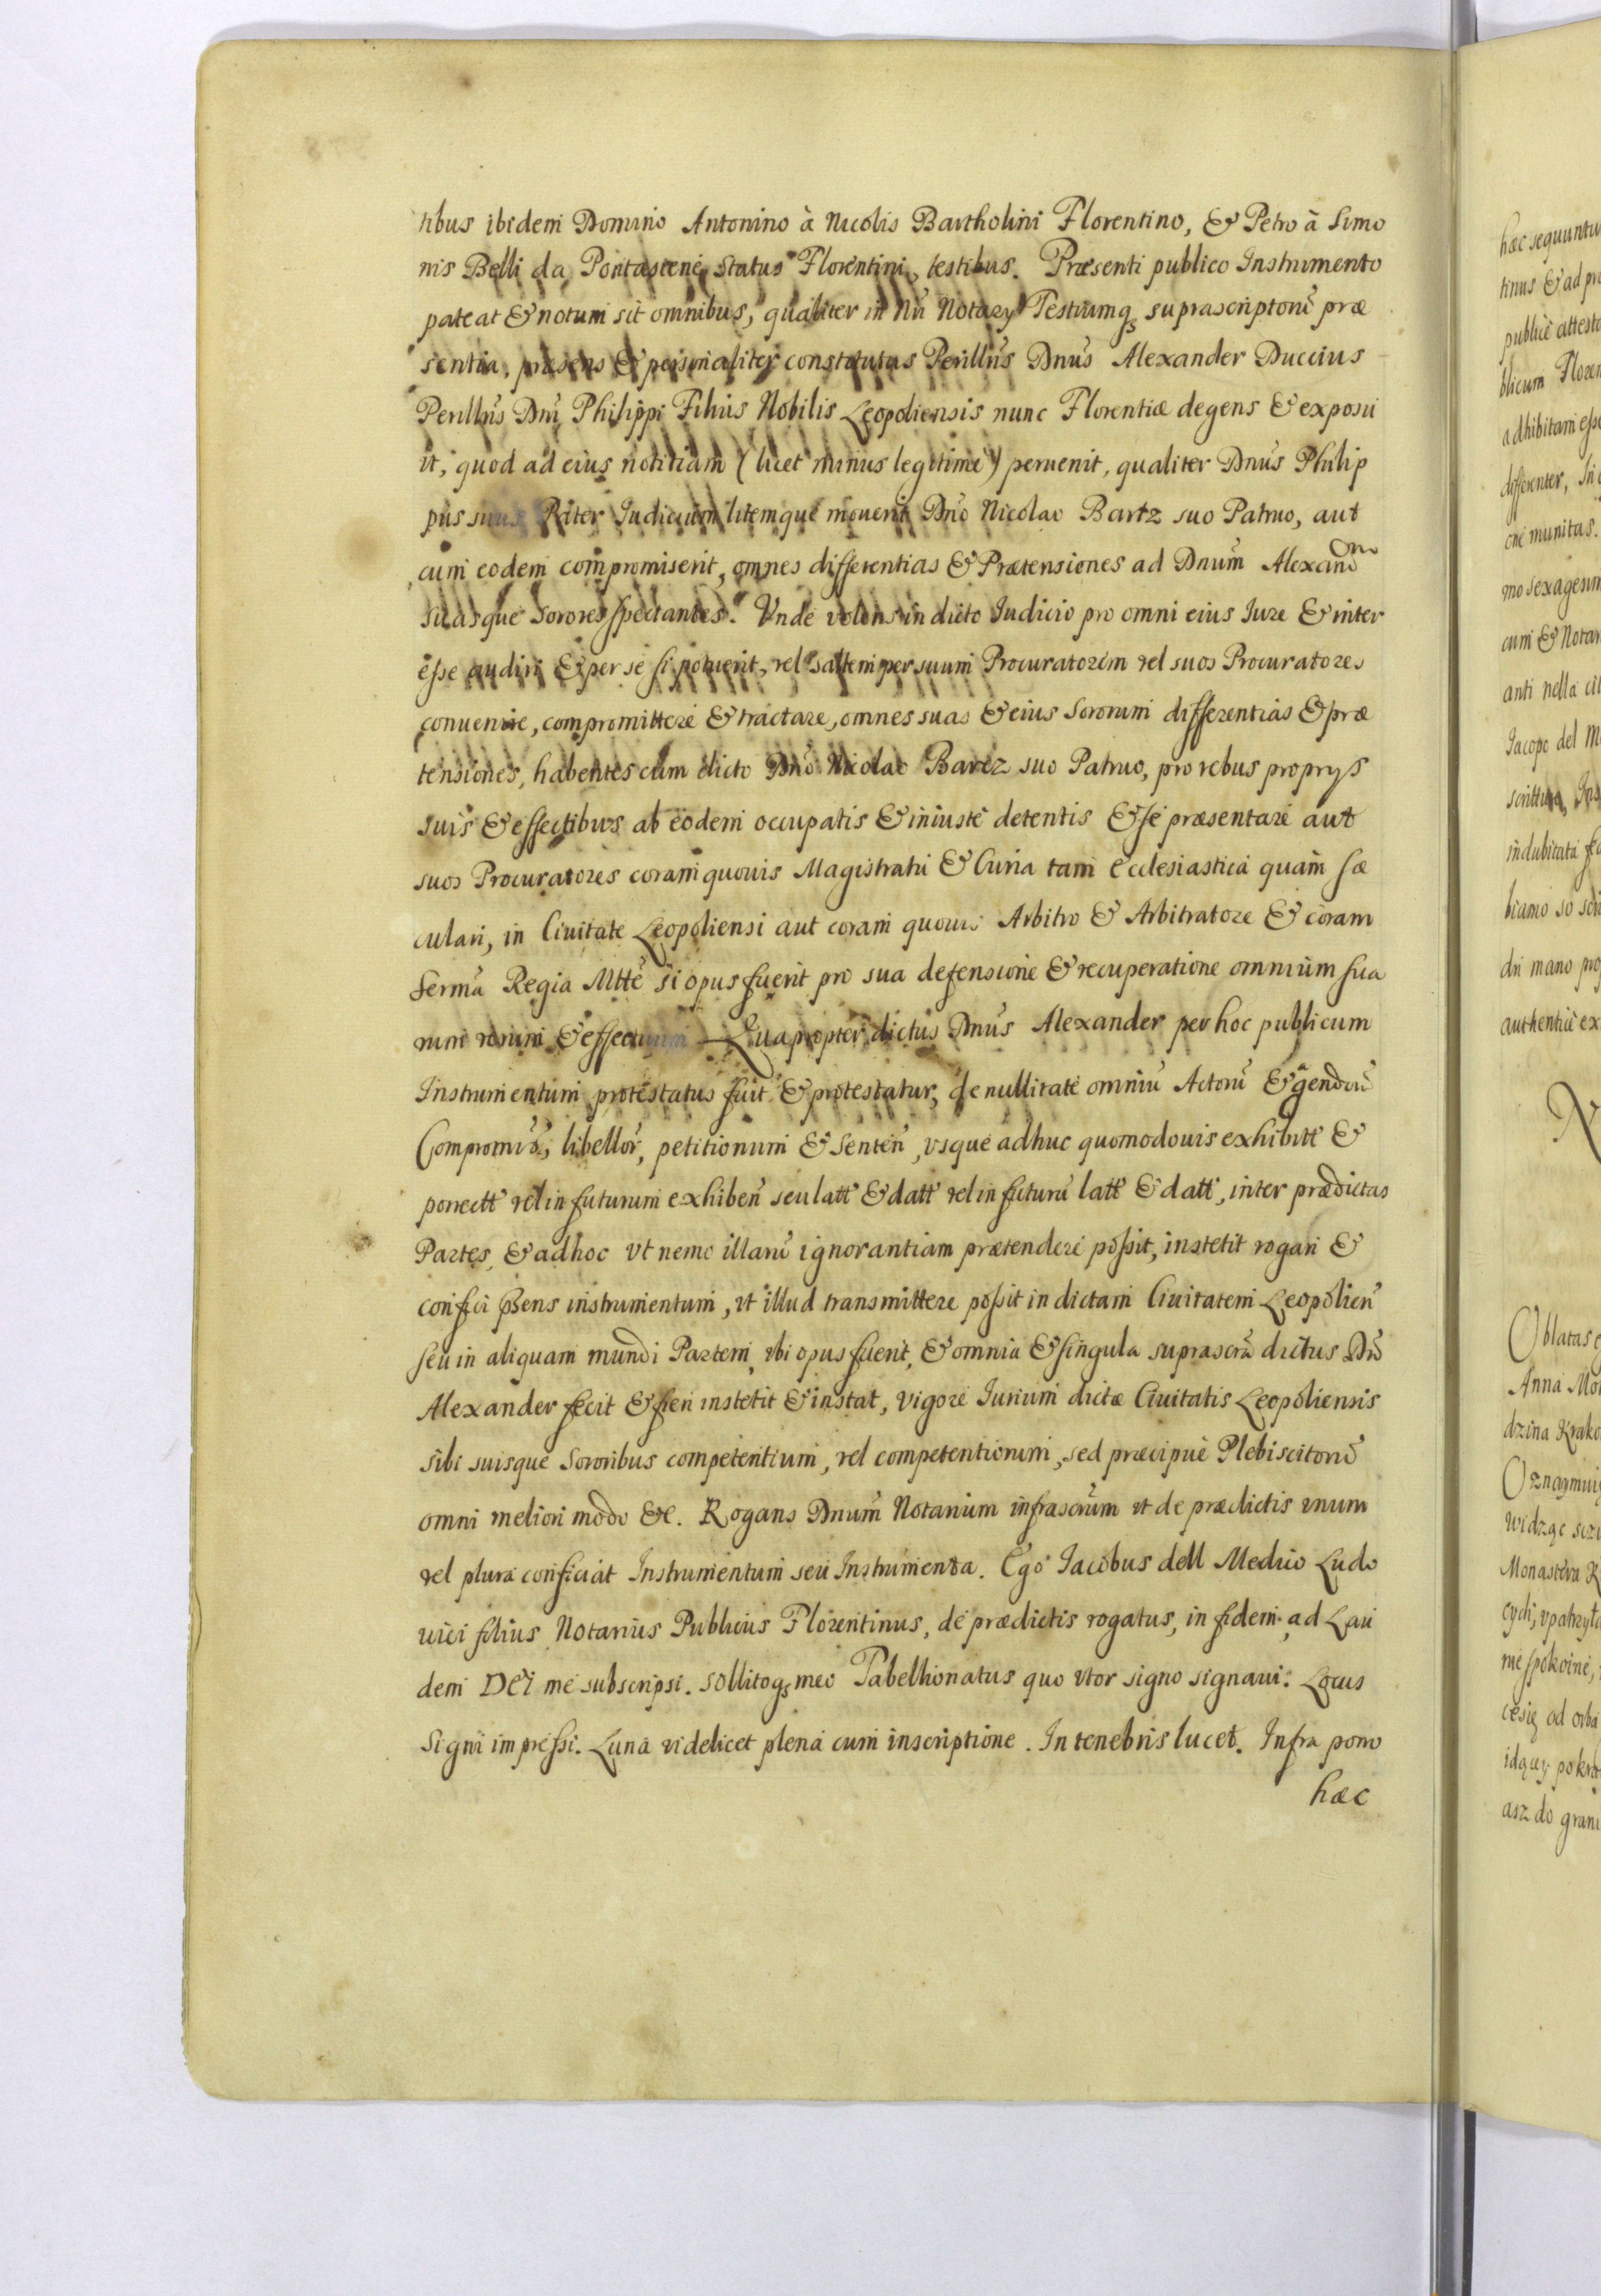 tibus ibidem Domino Antonino à Nicolis Bartholini Florentino, & Petro à Simo
nis Belli da Pontastene Status Florentini, testibus. Præsenti publico Instrumento
pateat & notum sit omnibus, qualiter in Nri Notary Testiumqз suprascriptorũ præ
sentia, præsens & personaliter constitutus Perillris Dnus Alexander Duccius
Perillris Dni Philippi Filius Nobilis Leopoliensis nunc Florentiæ degens & exposu
it, quod ad eius notitiam (licet minus legitime) peruenit, qualiter Dnus Philip
pus suus Pater Iudicium litemque mouerit Dno Nicolao Bartz suo Patruo, aut
cum eodem compromiserit, omnes differentias & Prætensiones ad Dnum Alexandrum
suasque Sorores spectantes. Vnde volens in dicto Iudicio pro omni eius Iure & inter
esse audiri & per se si potuerit, vel saltem per suum Procuratorem vel suos Procuratores
conuenire, compromittere & tractare, omnes suas & eius Sororum differentias & præ
tensiones, habentes cum dicto Dno Nicolao Bartz suo Patruo, pro rebus proprys
suis & effectibus ab eodem occupatis & iniuste detentis & se præsentare aut
suos Procuratores coram quouis Magistratu & Curia tam Ecclesiastica quàm sæ
culari, in Ciuitate Leopoliensi aut coram quouis Arbitro & Arbitratore & coram
Serma Regia Mtte si opus fuerit pro sua defensione & recuperatione omnium sua
rum rerum & effectuum Quapropter dictus Dnus Alexander per hoc publicum
Instrumentum protestatus fuit & protestatur, de nullitate omniũ Actorũ & agendorũ
Compromiss, libellor, petitionum & Senten, vsque adhuc quomodouis exhibitt &
porrectt vel in futurum exhiben seu latt & datt vel in futurũ latt & datt, inter prædictas
Partes, & ad hoc vt nemo illarũ ignorantiam prætendere possit, instetit rogari &
confici pñsens instrumentum, vt illud transmittere possit in dictam Ciuitatem Leopolien
seu in aliquam mundi Partem, vbi opus fuerit, & omnia & singula suprascra dictus Dñs
Alexander fecit & fieri instetit & instat, vigore Iurium dictæ Ciuitatis Leopoliensis
sibi suisque Sororibus competentium, vel competentiorum, sed præcipue Plebiscitorũ
omni meliori modo &c. Rogans Dnum Notarium infrascrum vt de prædictis vnum
vel plura conficiat Instrumentum seu Instrumenta. Ego Iacobus dell Medico Ludo
uici filius Notarius Publicus Florentinus, de prædictis rogatus, in fidem ad Lau
dem DEI me subscripsi. sollitoqз meo Tabellionatus quo vtor signo signaui. Locus
Signi impressi. Luna videlicet plena cum inscriptione. In tenebris lucet. Infra porro
hæc
hæc seguuntur
tinus & ad
publicè attesta
blicum Floren
adhibitam esse
differenter,
munitas.
mo sexagesim
cum & Notar
anti nella
Iacopo del
scrittura,
indubitata
biamo
di mano
authentice
Oblatas
Anna
dzina Krako
Oznaymui
widząc
Monastera
cych,
spokoine,
cesię od
idący pokra
asz do grani